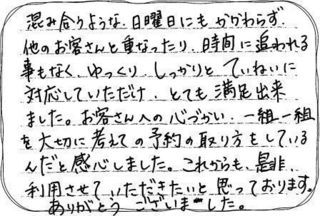 混み合うような、日曜日にもかかわらず、
他のお客さんと重なったり、時間に追われる
事もなく、ゆっくり、しっかりと ていねいに
対応していただけ、とても 満足出来
ました。お客さんへの心づかい、一組一組
を大切に考えての予約の取り方をしている
んだと感心しました。これからも、是非、
利用させていただきたいと思っております。
ありがとう ございました。